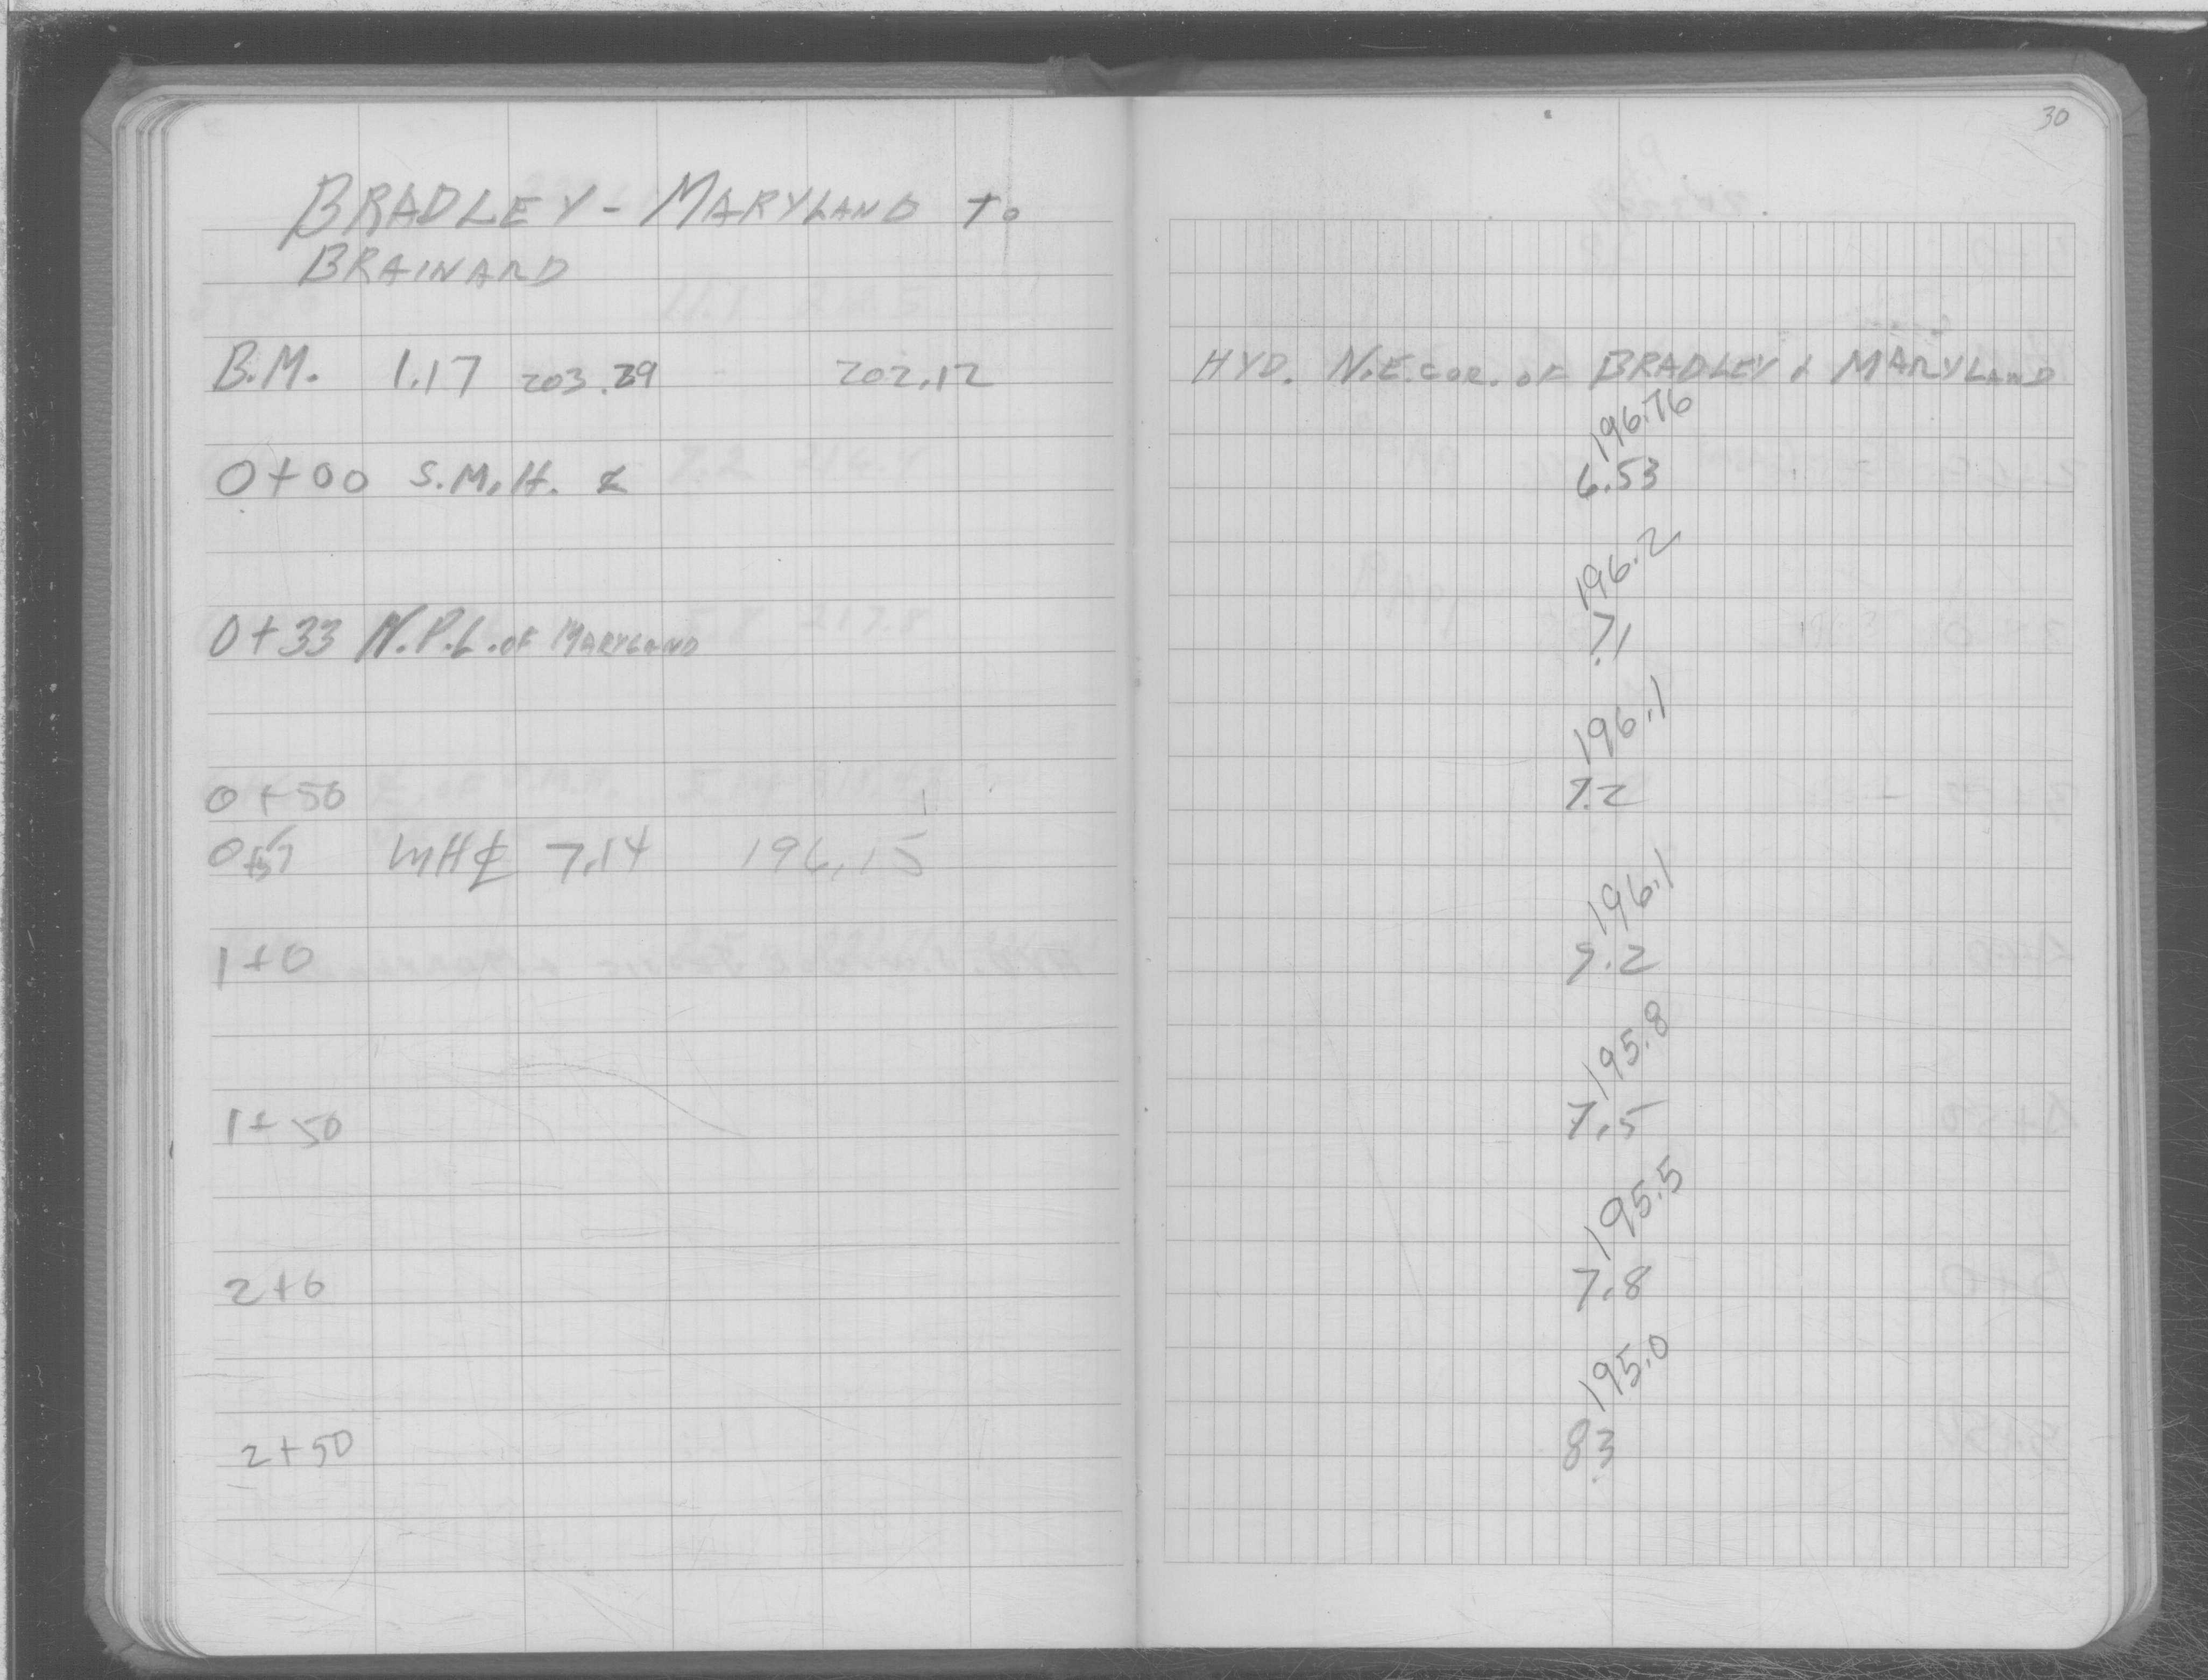 BRADLEY - MARYLAND To
BRAINARD
B.M. 1.17 203.29 202.12
0+00 S.M.H. ℄
0+33 N.P.L. OF MARYLAND
0+50
MH ℄ 7.14 196.15
1+0
1+50
2+0
2+50
30
HYD. N.E. COR. OF BRADLEY & MARYLAND
196.76
6.53
196.2
7.1
196.1
7.2
196.1
7.2
195.8
7.5
195.5
7.8
195.0
8.3